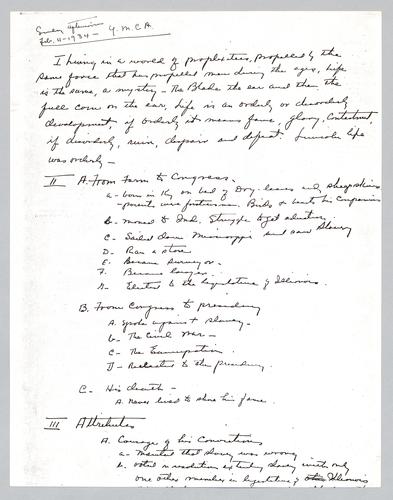 Sunday afternoon
Feb. 11-1934 - Y.M.C.A.
I living in a world of prophecies, propelled by the
same force that has propelled men during the ages, Life
is the same, a mystery - The Blade the ear and then the
full corn on the ear, Life is an orderly or disorderly
development, if orderly it means fame, glory, Contentment,
if disorderly, ruin, despair and defeat. Lincoln life
was orderly -
II A. From Farm to Congress.
a - born in Ky on bed of Dry leaves and sheepskins
were Birds & beasts his companions
b. moved to Ind. Struggle to get education.
C - Sailed down Mississippi and saw Slavery
D. Ran a store
E. Became surveyor.
F. Became lawyer.
G. Elected to the legislature of Illinois.
B. From Congress to presidency
A. Spoke against slavery.
b - The Civil War -
C - The Emancipation.
D - Reelected to the presidency.
C - His death -
A. Never lived to share his fame.
III Attributes
A. Courage of his Convictions
a - that slavery was wrong
b. Voted in resolution slavery with only
one other member in legislature of Illinois